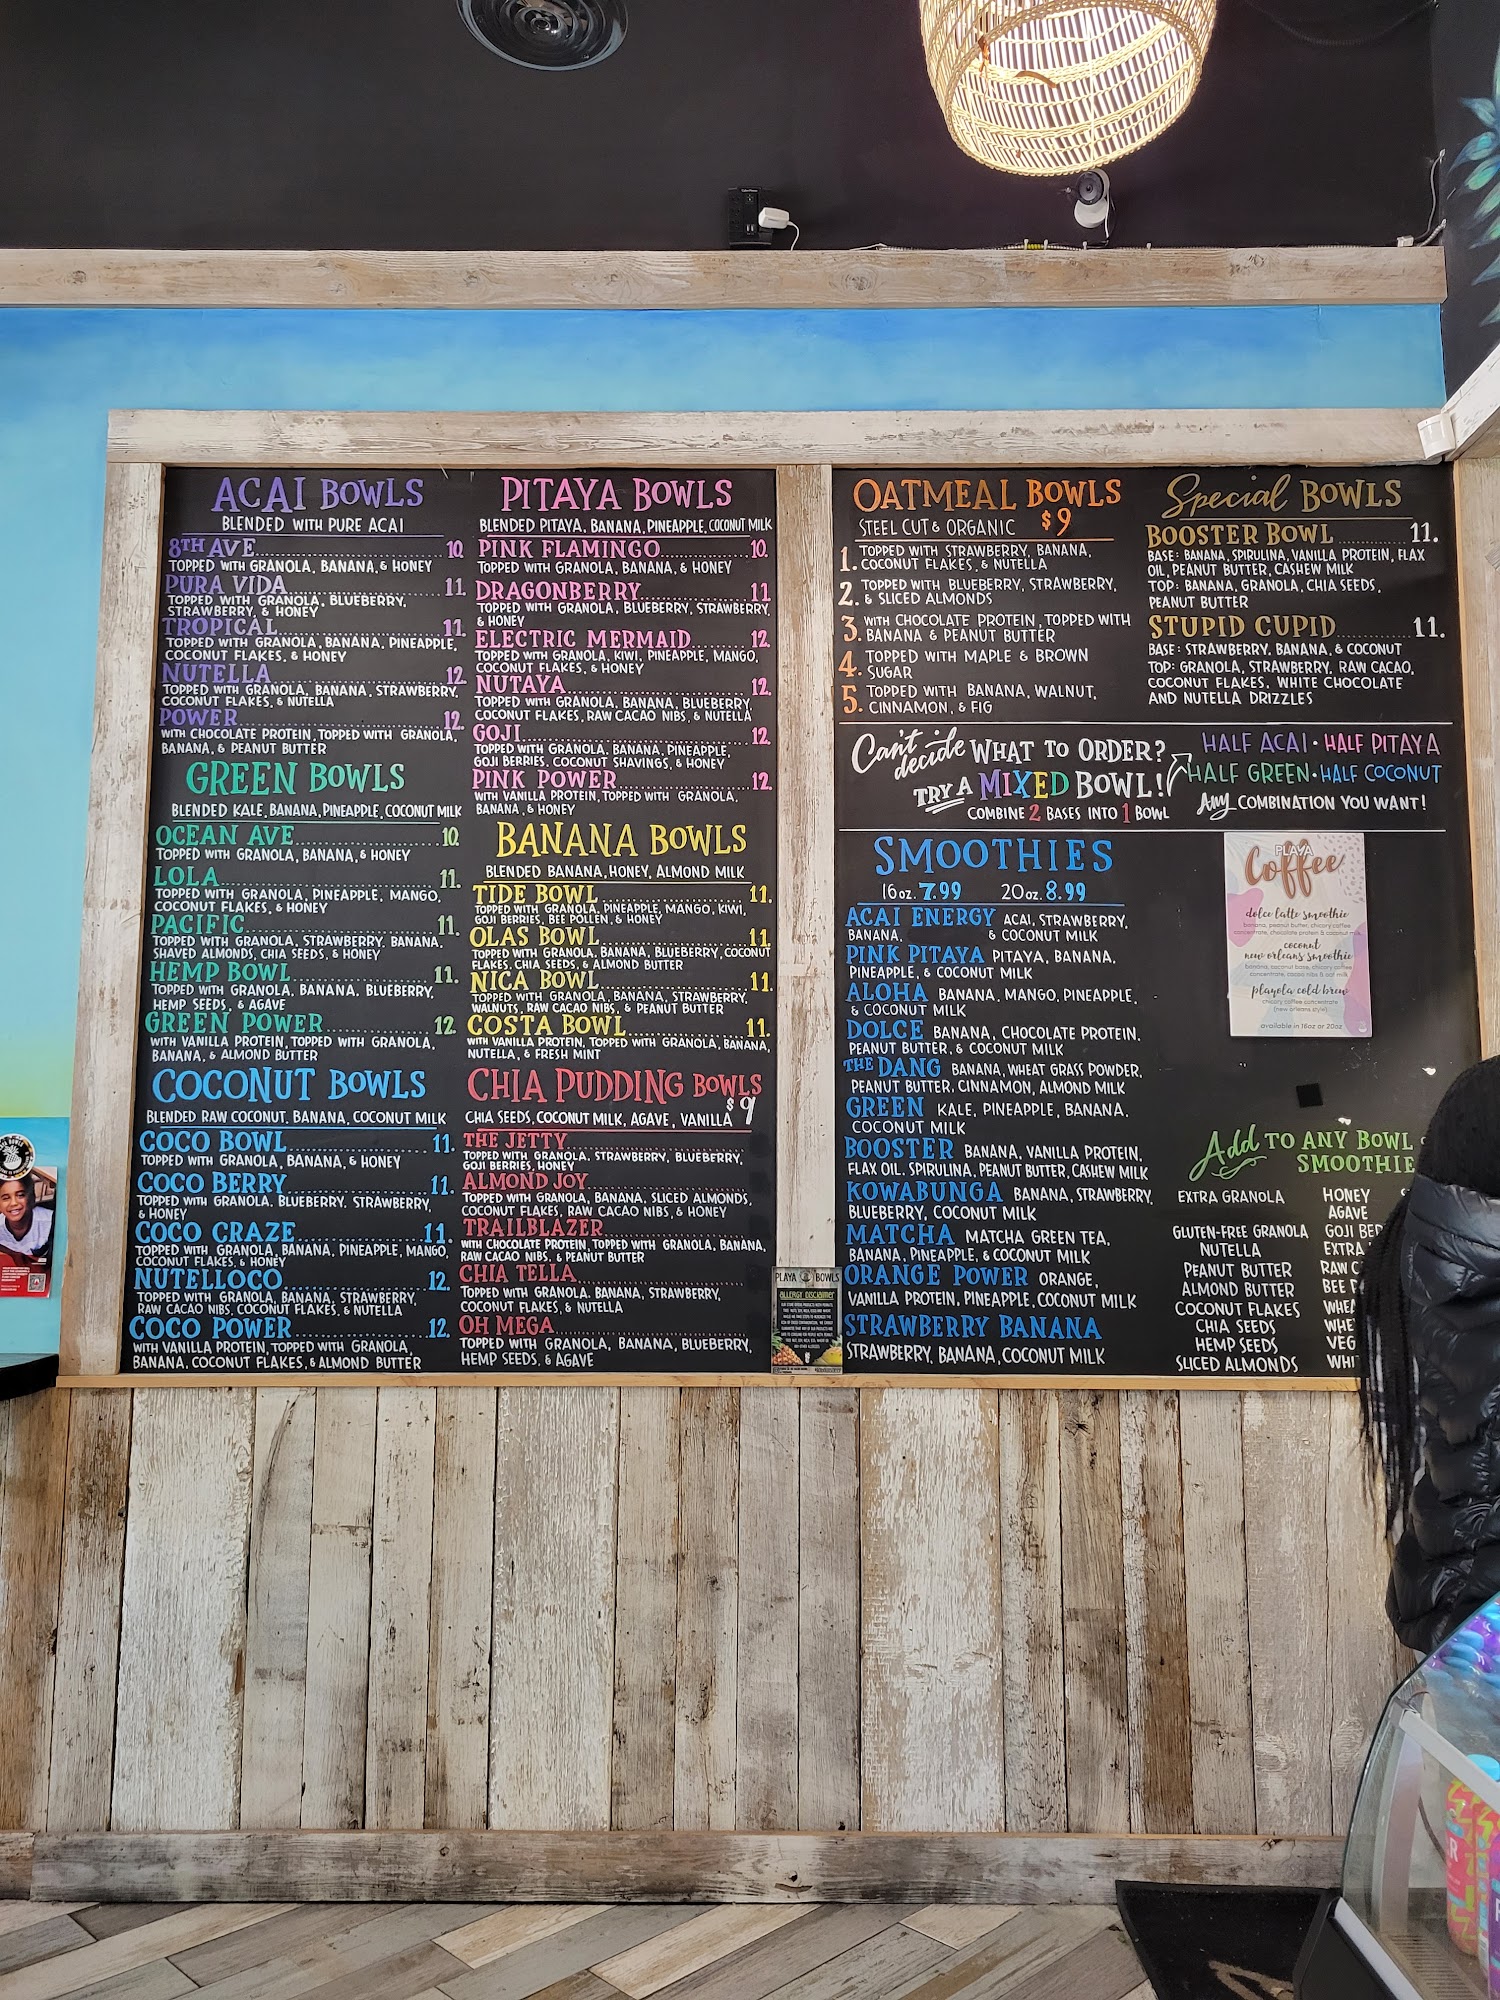 ACAI BOWLS
BLENDED WITH PURE ACAI
8TH AVE 10.
TOPPED WITH GRANOLA, BANANA, & HONEY
PURA VIDA 11.
TOPPED WITH GRANOLA, BLUEBERRY,
STRAWBERRY, & HONEY
TROPICAL 11.
TOPPED WITH GRANOLA, BANANA, PINEAPPLE,
COCONUT FLAKES, & HONEY
NUTELLA 12.
TOPPED WITH GRANOLA, BANANA, STRAWBERRY,
COCONUT FLAKES, & NUTELLA
POWER 12.
WITH CHOCOLATE PROTEIN, TOPPED WITH GRANOLA,
BANANA, & PEANUT BUTTER
GREEN BOWLS
BLENDED KALE, BANANA, PINEAPPLE, COCONUT MILK
OCEAN AVE 10.
TOPPED WITH GRANOLA, BANANA, & HONEY
LOLA 11.
TOPPED WITH GRANOLA, PINEAPPLE, MANGO,
COCONUT FLAKES, & HONEY
PACIFIC 11.
TOPPED WITH GRANOLA, STRAWBERRY, BANANA,
SHAVED ALMONDS, CHIA SEEDS, & HONEY
HEMP BOWL 11.
TOPPED WITH GRANOLA, BANANA, BLUEBERRY,
HEMP SEEDS, & AGAVE
GREEN POWER 12.
WITH VANILLA PROTEIN, TOPPED WITH GRANOLA,
BANANA, & ALMOND BUTTER
COCONUT BOWLS
BLENDED RAW COCONUT, BANANA, COCONUT MILK
COCO BOWL 11.
TOPPED WITH GRANOLA, BANANA, & HONEY
COCO BERRY 11.
TOPPED WITH GRANOLA, BLUEBERRY, STRAWBERRY,
& HONEY
COCO CRAZE 11.
TOPPED WITH GRANOLA, BANANA, PINEAPPLE, MANGO,
COCONUT FLAKES, & HONEY
NUTELLOCO 12.
TOPPED WITH GRANOLA, BANANA, STRAWBERRY,
RAW CACAO NIBS, COCONUT FLAKES, & NUTELLA
COCO POWER 12.
WITH VANILLA PROTEIN, TOPPED WITH GRANOLA,
BANANA, COCONUT FLAKES, & ALMOND BUTTER
PITAYA BOWLS
BLENDED PITAYA, BANANA, PINEAPPLE, COCONUT MILK
PINK FLAMINGO 10.
TOPPED WITH GRANOLA, BANANA, & HONEY
DRAGONBERRY 11
TOPPED WITH GRANOLA, BLUEBERRY, STRAWBERRY,
& HONEY
ELECTRIC MERMAID 12.
TOPPED WITH GRANOLA, KIWI, PINEAPPLE, MANGO,
COCONUT FLAKES, & HONEY
NUTAYA 12.
TOPPED WITH GRANOLA, BANANA, BLUEBERRY,
COCONUT FLAKES, RAW CACAO NIBS, & NUTELLA
GOJI 12.
TOPPED WITH GRANOLA, BANANA, PINEAPPLE,
GOJI BERRIES, COCONUT SHAVINGS, & HONEY
PINK POWER 12.
WITH VANILLA PROTEIN, TOPPED WITH GRANOLA,
BANANA, & HONEY
BANANA BOWLS
BLENDED BANANA, HONEY, ALMOND MILK
TIDE BOWL 11.
TOPPED WITH GRANOLA, PINEAPPLE, MANGO, KIWI,
GOJI BERRIES, BEE POLLEN, & HONEY
OLAS BOWL 11.
TOPPED WITH GRANOLA, BANANA, BLUEBERRY, COCONUT
FLAKES, CHIA SEEDS, & ALMOND BUTTER
NICA BOWL 11.
TOPPED WITH GRANOLA, BANANA, STRAWBERRY,
WALNUTS, RAW CACAO NIBS, & PEANUT BUTTER
COSTA BOWL 11.
WITH VANILLA PROTEIN, TOPPED WITH GRANOLA, BANANA,
NUTELLA, & FRESH MINT
CHIA PUDDING BOWLS
CHIA SEEDS, COCONUT MILK, AGAVE, VANILLA $9
THE JETTY
TOPPED WITH GRANOLA, STRAWBERRY, BLUEBERRY,
GOJI BERRIES, HONEY
ALMOND JOY
TOPPED WITH GRANOLA, BANANA, SLICED ALMONDS,
COCONUT FLAKES, RAW CACAO NIBS, & HONEY
TRAILBLAZER
WITH CHOCOLATE PROTEIN, TOPPED WITH GRANOLA, BANANA,
RAW CACAO NIBS, & PEANUT BUTTER
CHIA TELLA
TOPPED WITH GRANOLA, BANANA, STRAWBERRY,
COCONUT FLAKES, & NUTELLA
OH MEGA
TOPPED WITH GRANOLA, BANANA, BLUEBERRY,
HEMP SEEDS, & AGAVE
PLAYA BOWLS
ALLERGY DISCLAIMER
OATMEAL BOWLS
STEEL CUT & ORGANIC $9
1. TOPPED WITH STRAWBERRY, BANANA,
COCONUT FLAKES, & NUTELLA
2. TOPPED WITH BLUEBERRY, STRAWBERRY,
& SLICED ALMONDS
3. WITH CHOCOLATE PROTEIN, TOPPED WITH
BANANA & PEANUT BUTTER
4. TOPPED WITH MAPLE & BROWN
SUGAR
5. TOPPED WITH BANANA, WALNUT,
CINNAMON, & FIG
Special BOWLS
BOOSTER BOWL 11.
BASE: BANANA, SPIRULINA, VANILLA PROTEIN, FLAX
OIL, PEANUT BUTTER, CASHEW MILK
TOP: BANANA, GRANOLA, CHIA SEEDS,
PEANUT BUTTER
STUPID CUPID 11.
BASE: STRAWBERRY, BANANA, & COCONUT
TOP: GRANOLA, STRAWBERRY, RAW CACAO,
COCONUT FLAKES, WHITE CHOCOLATE
AND NUTELLA DRIZZLES
Can't decide WHAT TO ORDER?
TRY A MIXED BOWL!
COMBINE 2 BASES INTO 1 BOWL
HALF ACAI • HALF PITAYA
HALF GREEN • HALF COCONUT
Any COMBINATION YOU WANT!
SMOOTHIES
16oz. 7.99 20oz. 8.99
ACAI ENERGY ACAI, STRAWBERRY,
BANANA, & COCONUT MILK
PINK PITAYA PITAYA, BANANA,
PINEAPPLE, & COCONUT MILK
ALOHA BANANA, MANGO, PINEAPPLE,
& COCONUT MILK
DOLCE BANANA, CHOCOLATE PROTEIN,
PEANUT BUTTER, & COCONUT MILK
THE DANG BANANA, WHEAT GRASS POWDER,
PEANUT BUTTER, CINNAMON, ALMOND MILK
GREEN KALE, PINEAPPLE, BANANA,
COCONUT MILK
BOOSTER BANANA, VANILLA PROTEIN,
FLAX OIL, SPIRULINA, PEANUT BUTTER, CASHEW MILK
KOWABUNGA BANANA, STRAWBERRY,
BLUEBERRY, COCONUT MILK
MATCHA MATCHA GREEN TEA,
BANANA, PINEAPPLE, & COCONUT MILK
ORANGE POWER ORANGE,
VANILLA PROTEIN, PINEAPPLE, COCONUT MILK
STRAWBERRY BANANA
STRAWBERRY, BANANA, COCONUT MILK
PLAYA
Coffee
dolce latte smoothie
banana, peanut butter, chicory coffee
concentrate, chocolate protein & coconut milk
coconut
new orleans smoothie
banana, coconut base, chicory coffee
concentrate, cacao nibs & oat milk
playola cold brew
chicory coffee concentrate
(new orleans style)
available in 16oz or 20oz
Add TO ANY BOWL
SMOOTHIE
EXTRA GRANOLA
GLUTEN-FREE GRANOLA
NUTELLA
PEANUT BUTTER
ALMOND BUTTER
COCONUT FLAKES
CHIA SEEDS
HEMP SEEDS
SLICED ALMONDS
HONEY
AGAVE
GOJI BER
EXTRA
RAW C
BEE P
WHEA
WHE
VEG
WHI